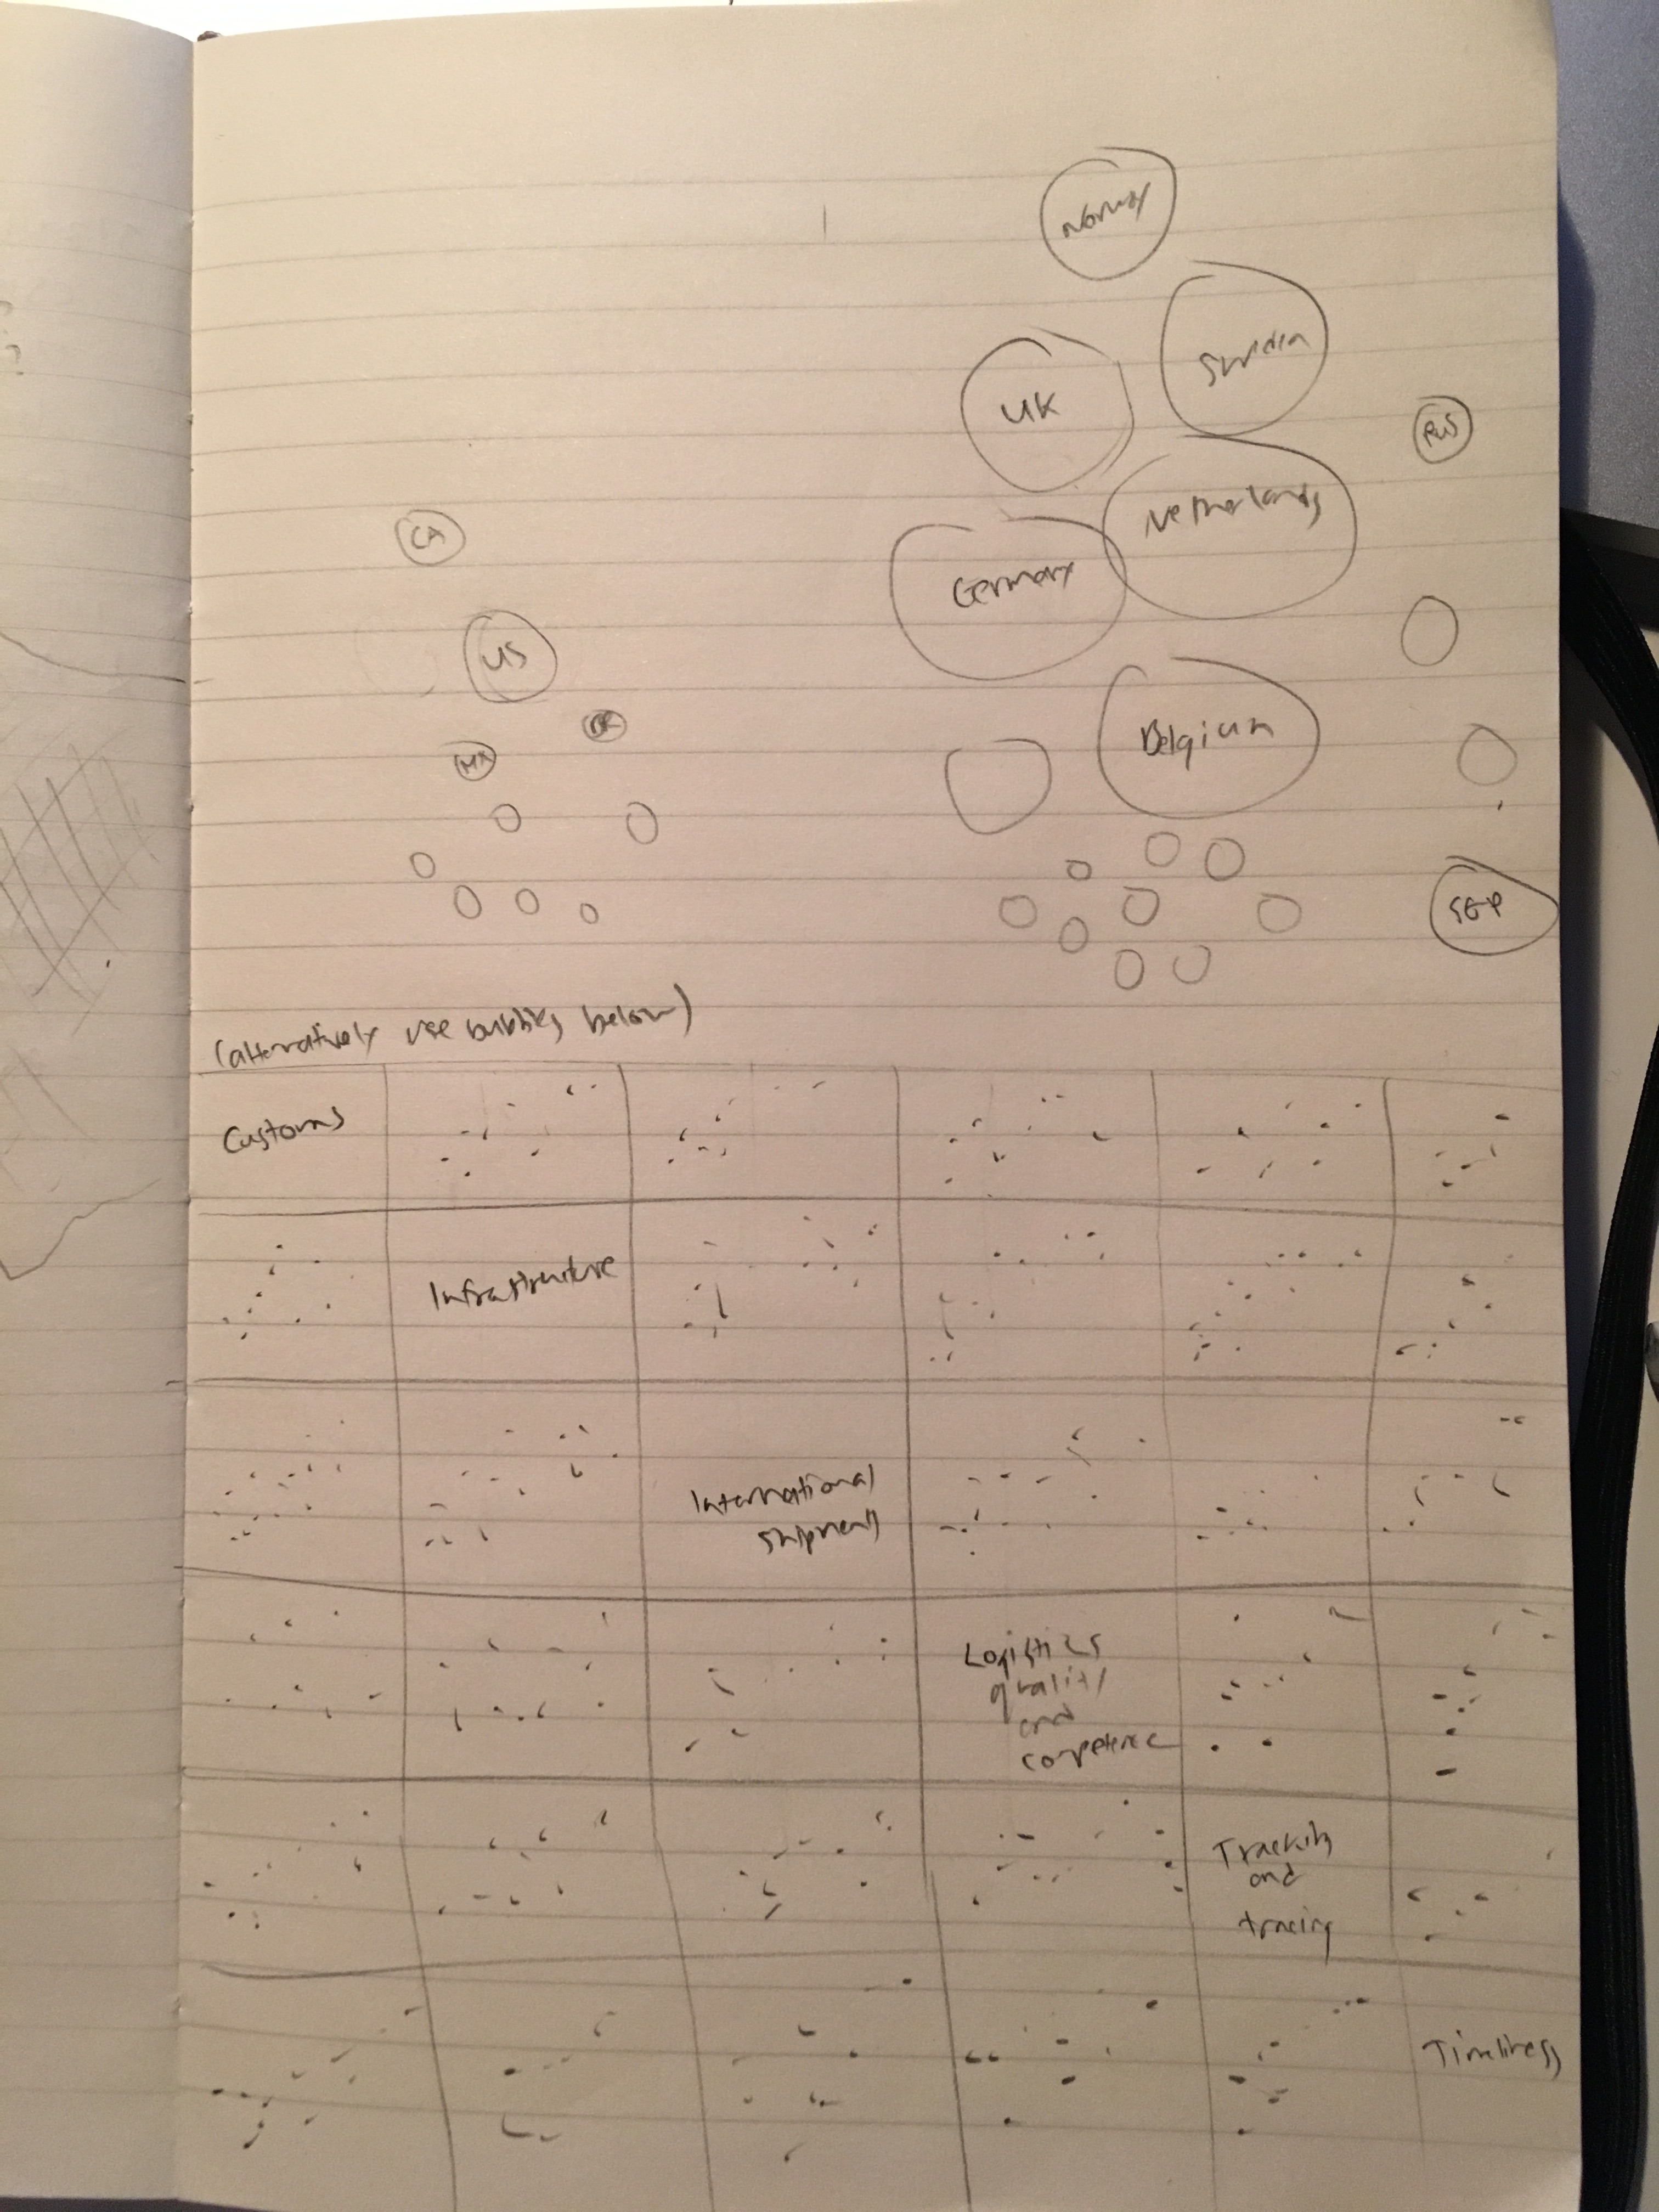 Norway
Sweden
UK
RUS
CA
Netherlands
Germany
US
Belgium
MX
SGP
(alternatively use bubbles below)
Customs
Infrastructure
International
shipments
Logistics
quality
and
competence
Tracking
and
tracing
Timeliness